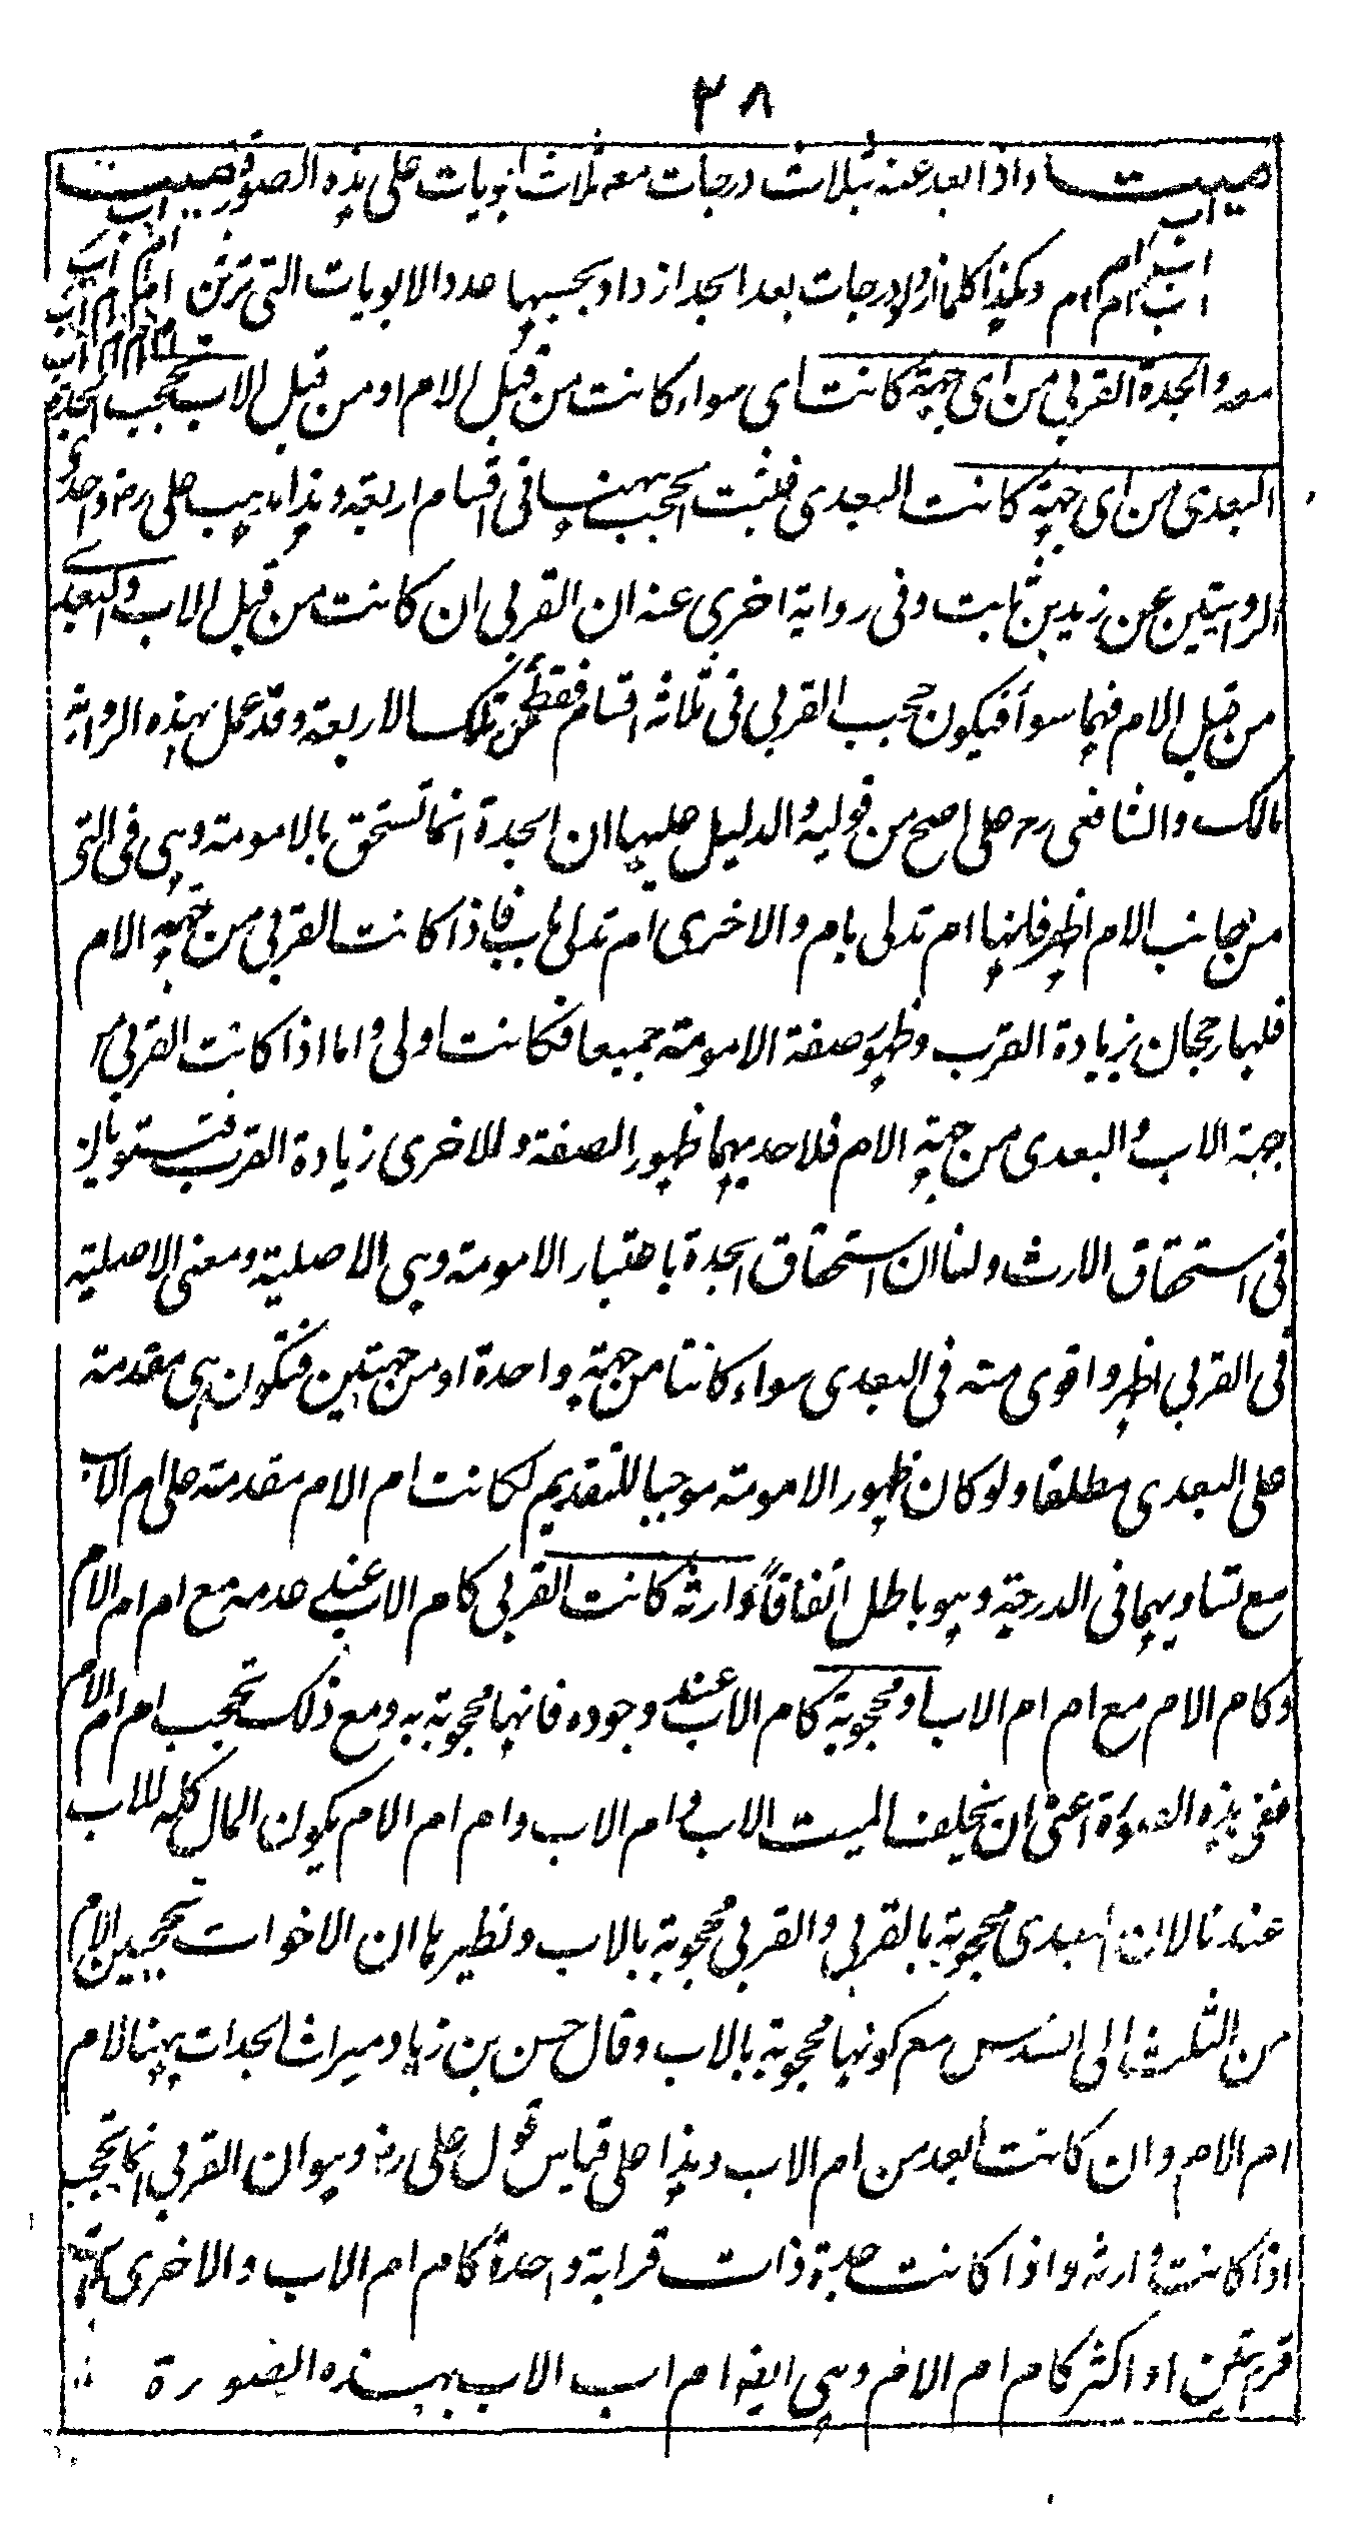 ٢٨
ميت واذا بعد عنه بثلاث درجات معه ثلاث ابويات على هذه الصورة ميت
اب اب
اب ام اب ام ام وهكذا كلما ازداد درجات بعد الجد ازداد بحسبها عدد الابويات التى ترثن ام اب ام ام اب
معه والجدة القربى من اى جهة كانت اى سواء كانت من قبل الام او من قبل الاب تحجب الجدة
البعدى من اى جهة كانت البعدى فثبت الحجب ههنا فى اقسام اربعة وهذا مذهب على رض واحدى
الروايتين عن زيد بن ثابت وفى رواية اخرى عنه ان القربى ان كانت من قبل الاب والبعدى
من قبل الام فهما سواء فيكون حجب القربى فى ثلاثة اقسام فقط من تلك الاربعة وقد عمل بهذه الرواية
مالك والشافعى رح على اصح من قوليه والدليل عليها ان الجدة انما تستحق بالامومة وهى فى التى
من جانب الام اظهر فانها ام تدلى بام والاخرى ام تدلى باب فاذا كانت القربى من جهة الام
فلها رجحان بزيادة القرب وظهور صفة الامومة جميعا فكانت اولى واما اذا كانت القربى من
جهة الاب والبعدى من جهة الام فلاحديهما ظهور الصفة وللاخرى زيادة القرب فتستويان
فى استحقاق الارث ولنا ان استحقاق الجدة باعتبار الامومة وهى الاصلية ومعنى الاصلية
فى القربى اظهر واقوى منه فى البعدى سواء كانتا من جهة واحدة او من جهتين فتكون هى مقدمة
على البعدى مطلقا ولو كان ظهور الامومة موجبا للتقديم لكانت ام الام مقدمة على ام الاب
مع تساويهما فى الدرجة وهو باطل اتفاقاً وارثة كانت القربى كام الاب عند عدمه مع ام ام الام
وكام الام مع ام ام الاب او محجوبة كام الاب عند وجوده فانها محجوبة به ومع ذلك تحجب ام ام الام
ففى هذه الصورة اعنى ان يخلف الميت الاب وام الاب وام ام الام يكون المال كله للاب
عندنا لان البعدى محجوبة بالقربى والقربى محجوبة بالاب ونظير ها ان الاخوات تحجبن الام
من الثلث الى السدس مع كونها محجوبة بالاب وقال حسن بن زياد ميراث الجدات ههنا لام
ام الام وان كانت ابعد من ام الاب وهذا على قياس قول على رض وهو ان القربى انما تحجب
اذا كانت وارثة واذا كانت جدة ذات قرابة واحدة كام ام الاب والاخرى ذات
قرابتين او اكثر كام ام الام وهى ايضا ام اب الاب بهذه الصورة